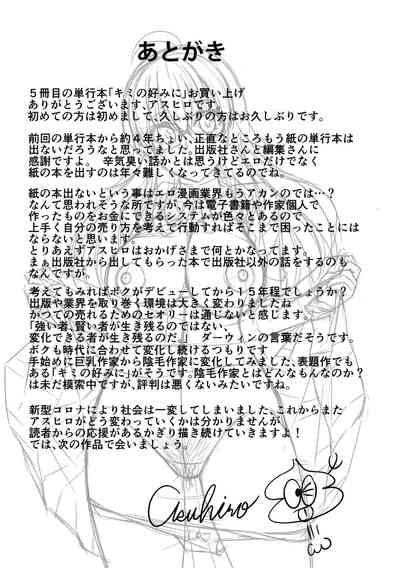 あとがき
５冊目の単行本「キミの好みに」お買い上げ
ありがとうございます、アスヒロです。
初めての方は初めまして、久しぶりの方はお久しぶりです。
前回の単行本から約４年ちょい、正直なところもう紙の単行本は
出ないだろうなと思ってました。出版社さんと編集さんに
感謝ですよ。　辛気臭い話かとは思うけどエロだけでなく
紙の本を出すのは年々難しくなってきてるのでね。
紙の本出ないという事はエロ漫画業界もうアカンのでは…？
なんて思われそうな所ですが、今は電子書籍や作家個人で
作ったものをお金にできるシステムが色々とあるので
上手く自分の売り方を考えて行動すればそこまで困ったことには
ならないと思います。
とりあえずアスヒロはおかげさまで何とかなってます。
まぁ出版社から出してもらった本で出版社以外の話をするのも
なんですが。
考えてもみればボクがデビューしてから１５年程でしょうか？
出版や業界を取り巻く環境は大きく変わりましたね
かつての売れるためのセオリーは通じないと感じます。
「強い者、賢い者が生き残るのではない、
変化できる者が生き残るのだ。」　ダーウィンの言葉だそうです。
ボクも時代に合わせて変化し続けるつもりです
手始めに巨乳作家から陰毛作家に変化してみました、表題作でも
ある「キミの好みに」がそうです。陰毛作家とはどんなもんなのか？
は未だ模索中ですが、評判は悪くないみたいですね。
新型コロナにより社会は一変してしまいました、これからまた
アスヒロがどう変わっていくかは分かりませんが、
読者からの応援があるかぎり描き続けていきますよ！
では、次の作品で会いましょう。
asuhiro